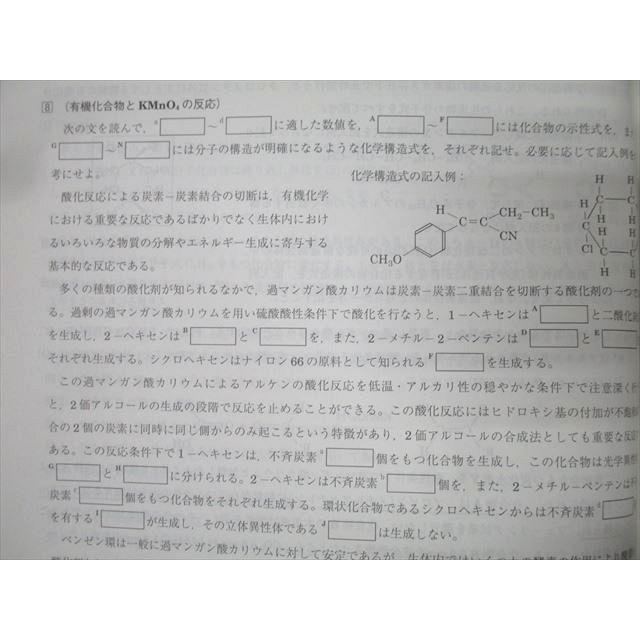 8 (有機化合物と KMnO₄ の反応)
次の文を読んで, a ～ d に適した数値を, A ～ F には化合物の示性式を, ま
G ～ N には分子の構造が明確になるような化学構造式を, それぞれ記せ. 必要に応じて記入例を
考にせよ.
化学構造式の記入例:
酸化反応による炭素−炭素結合の切断は, 有機化学
における重要な反応であるばかりでなく生体内におけ
るいろいろな物質の分解やエネルギー生成に寄与する
基本的な反応である.
H C=C CH₂−CH₃ CN CH₃O
H H H H Cl H H
多くの種類の酸化剤が知られるなかで, 過マンガン酸カリウムは炭素−炭素二重結合を切断する酸化剤の一つ
る. 過剰の過マンガン酸カリウムを用い硫酸酸性条件下で酸化を行なうと, 1−ヘキセンは A と二酸化
を生成し, 2−ヘキセンは B と C を, また, 2−メチル−2−ペンテンは D と E
それぞれ生成する. シクロヘキセンはナイロン66の原料として知られる F を生成する.
この過マンガン酸カリウムによるアルケンの酸化反応を低温・アルカリ性の穏やかな条件下で注意深く
と, 2価アルコールの生成の段階で反応を止めることができる. この酸化反応にはヒドロキシ基の付加が不飽
合の2個の炭素に同時に同じ側からのみ起こるという特徴があり, 2価アルコールの合成法としても重要な反
ある. この反応条件下で1−ヘキセンは, 不斉炭素 a 個をもつ化合物を生成し, この化合物は光学
G と H に分けられる. 2−ヘキセンは不斉炭素 b 個を, また, 2−メチル−ペンテンは
炭素 c 個をもつ化合物をそれぞれ生成する. 環状化合物であるシクロヘキセンからは不斉炭素 d
を有する I が生成し, その立体異性体である J は生成しない.
ベンゼン環は一般に過マンガン酸カリウムに対して安定であるが, 生体内では